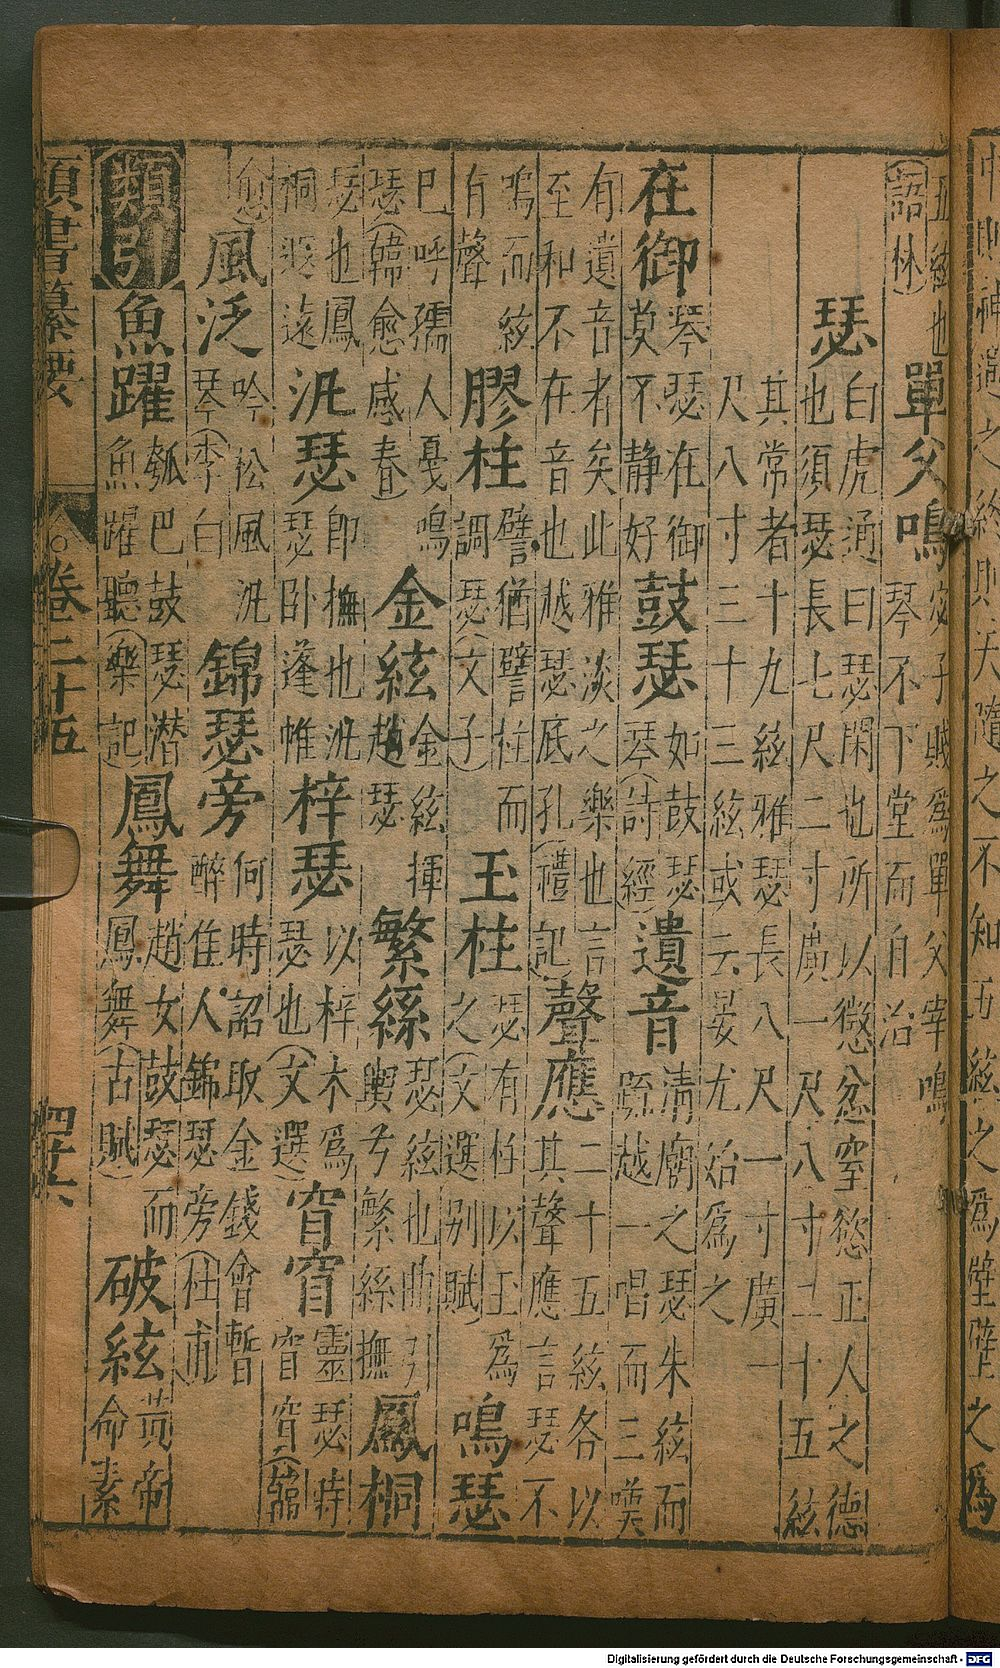 中則神過之終則天隨之不知五絃之為壁壁之為
五絃也
(語林)
單父鳴
宓子賤為單父宰鳴
琴不下堂而自治
瑟
白虎通曰瑟閑也所以懲忿窒慾正人之德
也須瑟長七尺二寸廣一尺八寸二十五絃
其常者十九絃雅瑟長八尺一寸廣一
尺八寸三十三絃或云晏尤始為之
在御
琴瑟在御
莫不靜好
鼓瑟
如鼓瑟
琴(詩經)
遺音
清廟之瑟朱絃而
疏越一唱而三嘆
有遺音者矣此雅淡之樂也言
至和不在音也越瑟底孔(禮記)
聲應
二十五絃各以
其聲應言瑟不
鳴而絃
有聲
膠柱
譬猶譬柱而
調瑟(文子)
玉柱
瑟有柱以玉為
之(文選別賦)
鳴瑟
巴呼孺人戞鳴
瑟(韓愈感春)
金絃
金絃揮
趙瑟
繁絲
瑟絃也曲引
輿兮繁絲撫
鳳桐
瑟也鳳
桐遐遠
汎瑟
即撫也汎
瑟卧蓬帷
梓瑟
以梓木為
瑟也(文選)
窅窅
靈瑟時
窅窅(韓
愈)
風泛
吟松風汎
琴(李白
錦瑟旁
何時詔取金錢會暫
醉佳人錦瑟旁(杜甫
類引
魚躍
瓠巴鼓瑟潜
魚躍聽(樂記)
鳳舞
趙女鼓瑟而
鳳舞(古賦)
破絃
黃帝
命素
類書纂要
卷二十五
四十六
Digitalisierung gefördert durch die Deutsche Forschungsgemeinschaft - DFG